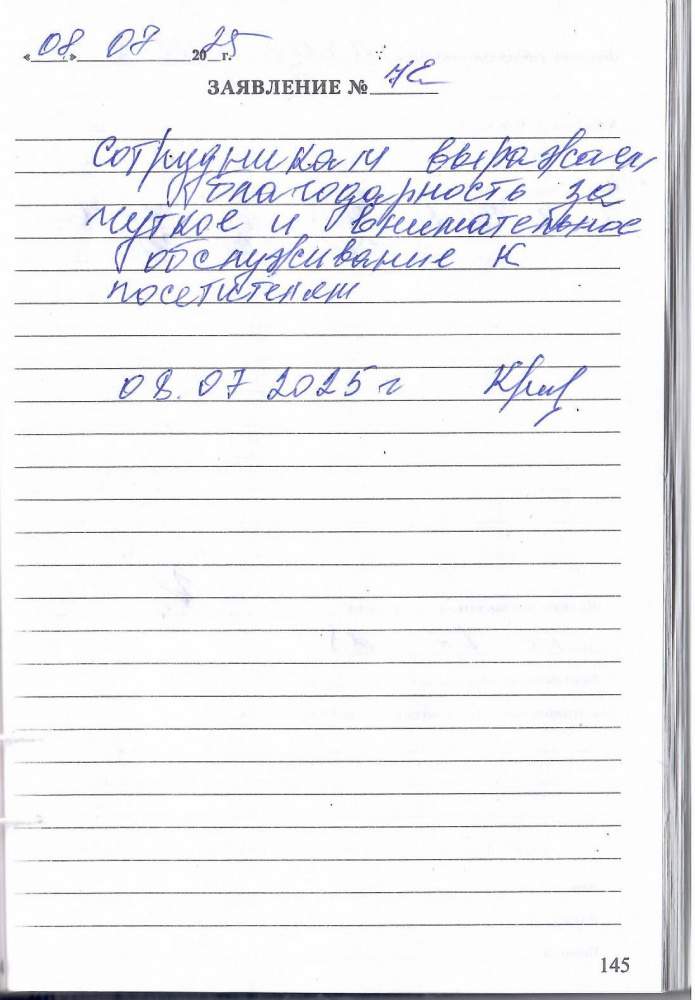 «08» 07 2025 г.
ЗАЯВЛЕНИЕ №
Сотрудникам выражаем
благодарность за
чуткое и внимательное
обслуживание к
посетителям
08.07 2025 г
145